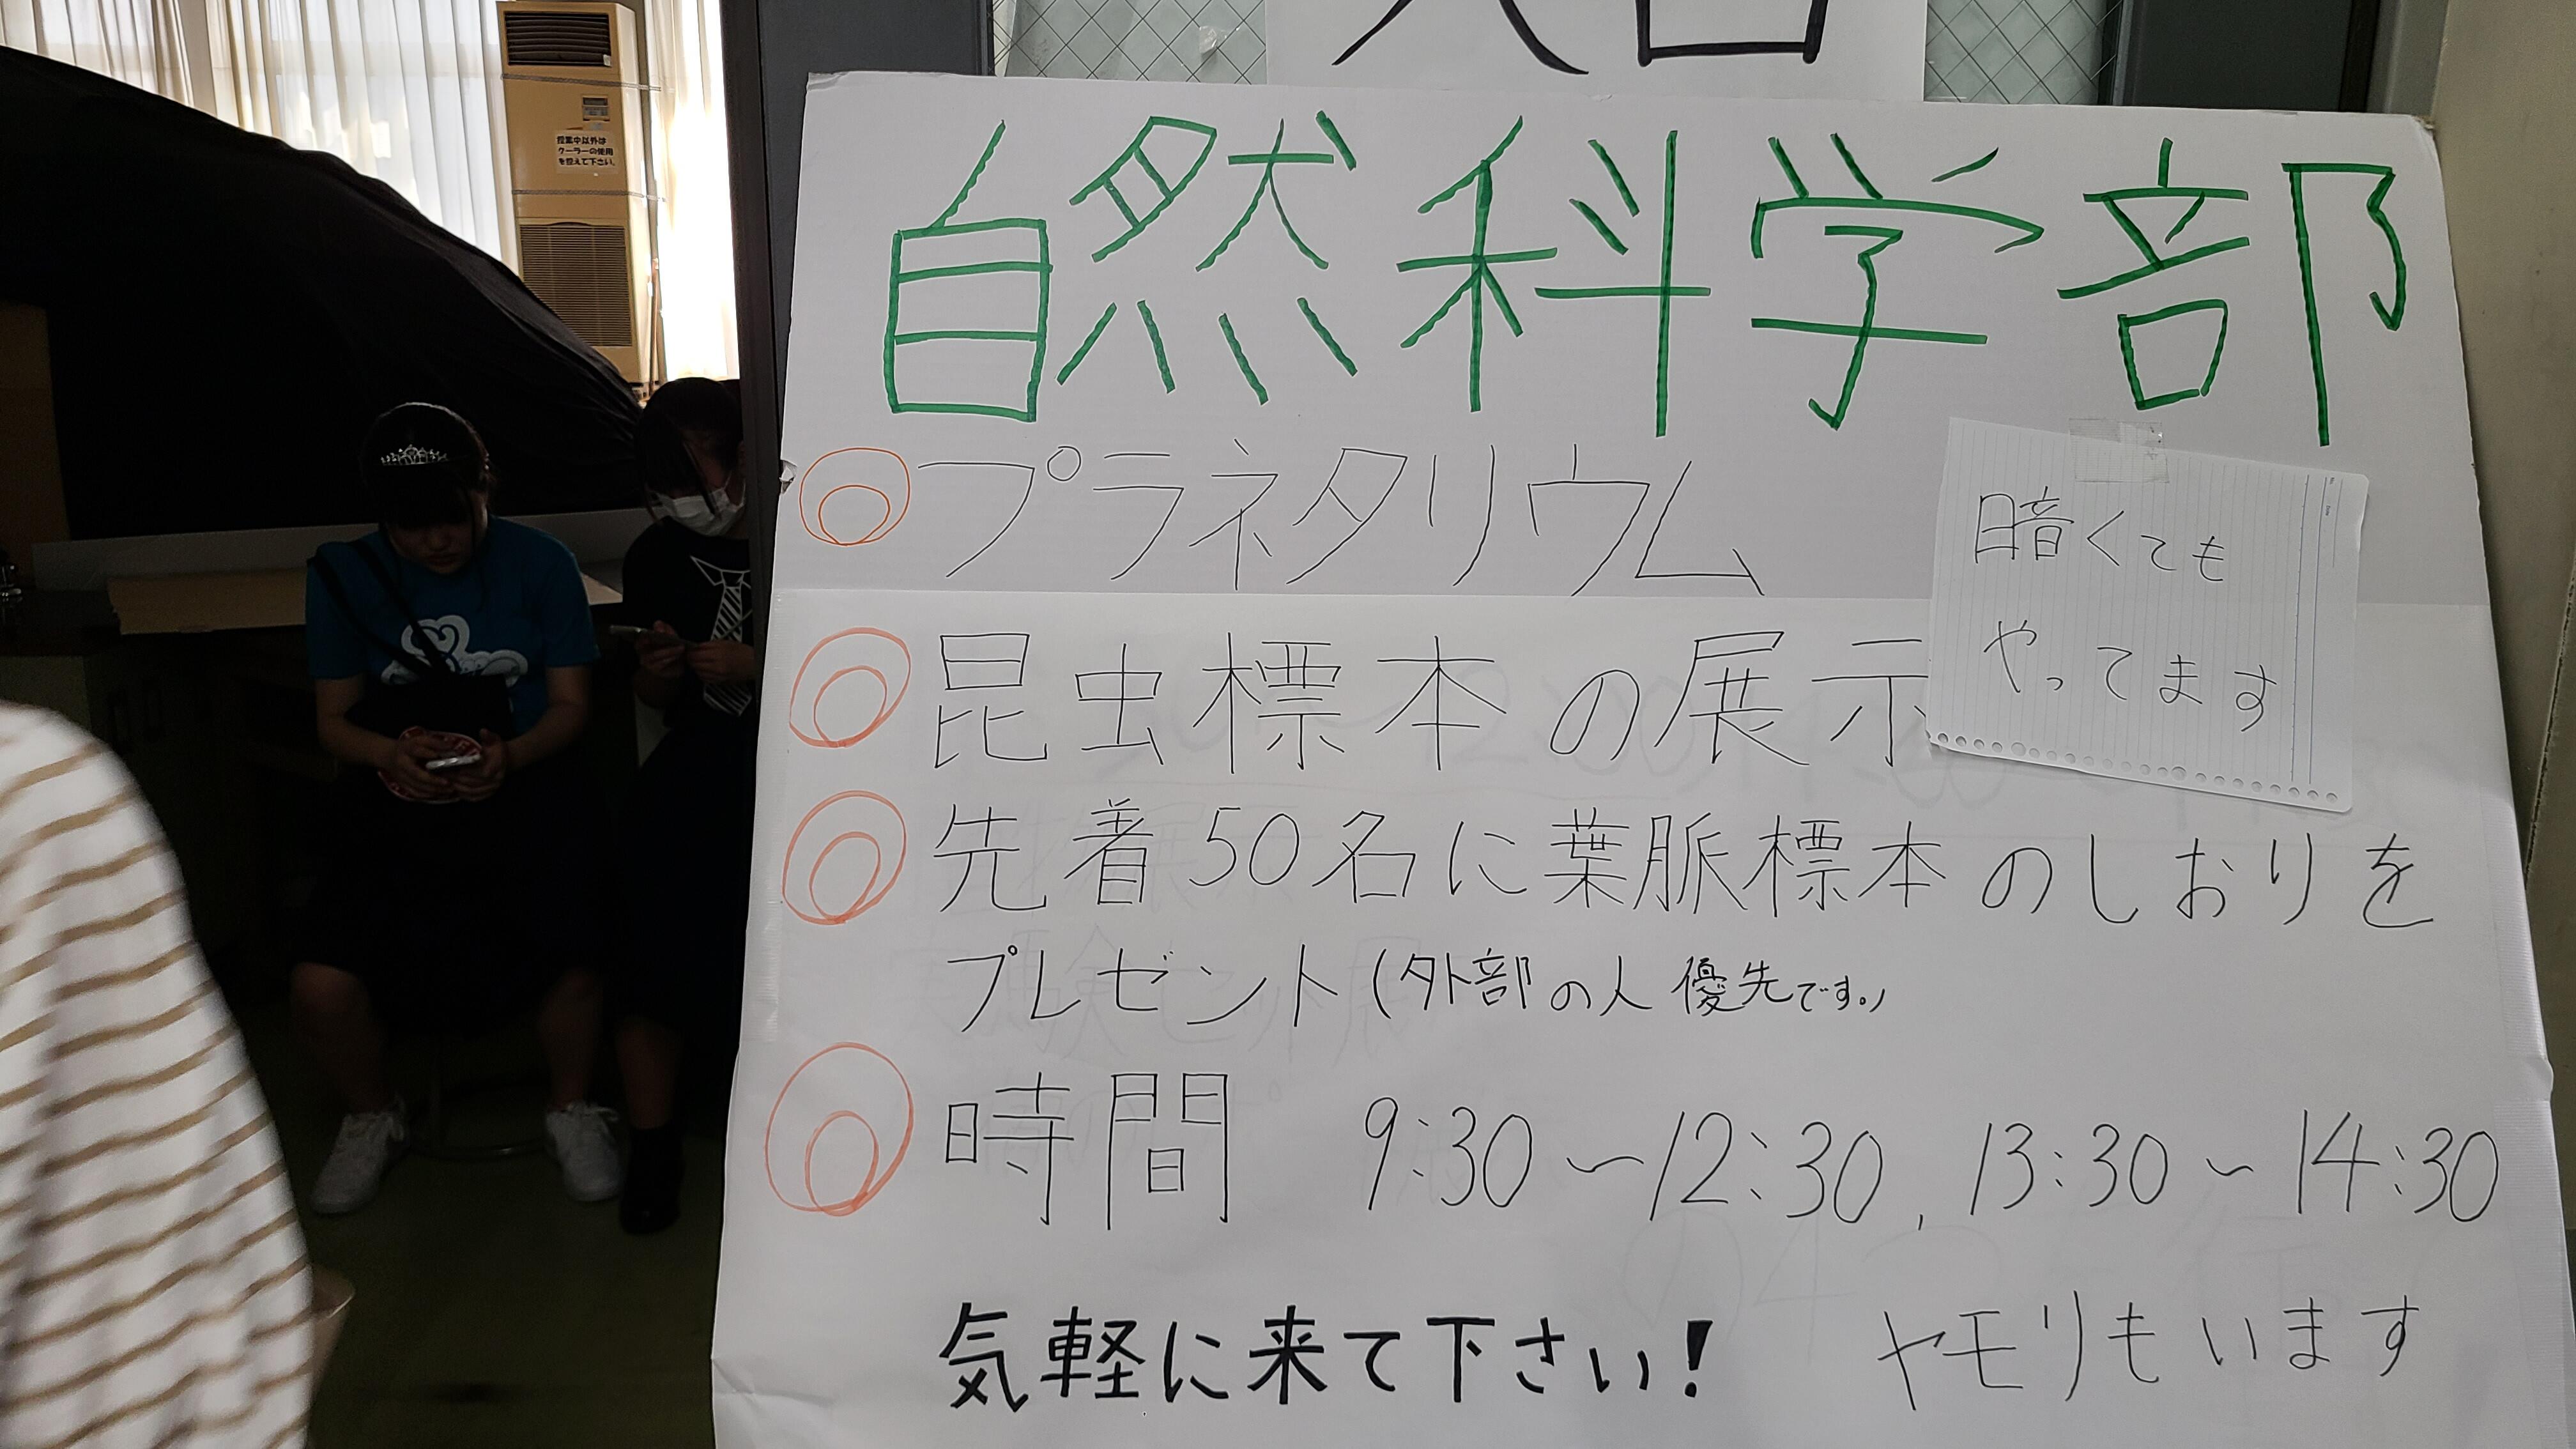 入口
授業中以外は
クーラーの使用
を控えて下さい。
自然科学部
プラネタリウム
暗くても
やってます
昆虫標本の展示
先着50名に葉脈標本のしおりを
プレゼント(外部の人優先です。)
時間 9:30〜12:30, 13:30〜14:30
気軽に来て下さい!
ヤモリもいます